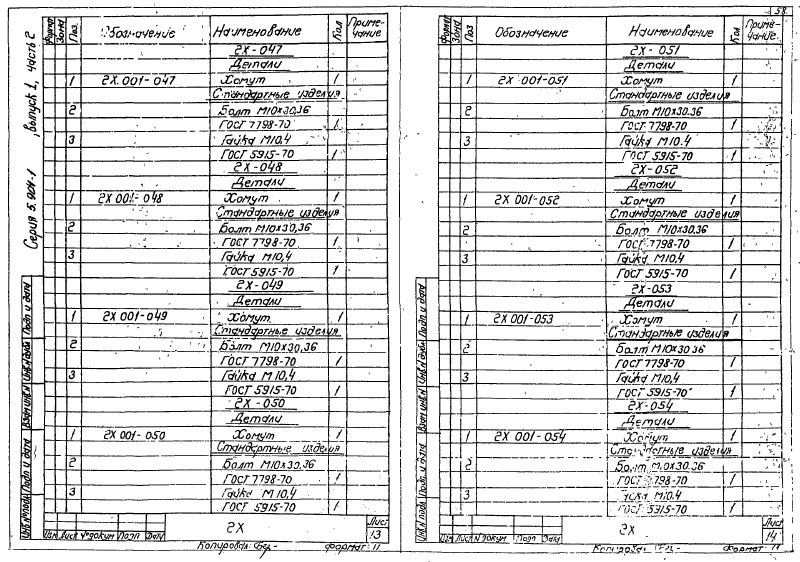 Серия 5.904-1, выпуск 1, часть 2
Формат Зона Поз Обозначение Наименование Кол Примечание
2Х-047
Детали
1 2Х 001-047 Хомут 1
Стандартные изделия
2 Болт М10х30,36
ГОСТ 7798-70 1
3 Гайка М10.4
ГОСТ 5915-70 1
2Х-048
Детали
1 2Х 001-048 Хомут 1
Стандартные изделия
2 Болт М10х30,36
ГОСТ 7798-70 1
3 Гайка М10,4
ГОСТ 5915-70 1
2Х-049
Детали
1 2Х 001-049 Хомут 1
Стандартные изделия
2 Болт М10х30,36
ГОСТ 7798-70 1
3 Гайка М10,4
ГОСТ 5915-70 1
2Х-050
Детали
1 2Х 001-050 Хомут 1
Стандартные изделия
2 Болт М10х30,36
ГОСТ 7798-70 1
3 Гайка М10,4
ГОСТ 5915-70 1
Инв.N подл Подп и дата Взам инв.N Инв.N дубл Подп и дата
Изм Лист N докум Подп Дата
2Х
Лист
13
Копировал Формат 11
58
Формат Зона Поз Обозначение Наименование Кол Примечание
2Х-051
Детали
1 2Х 001-051 Хомут 1
Стандартные изделия
2 Болт М10х30.36
ГОСТ 7798-70 1
3 Гайка М10.4
ГОСТ 5915-70 1
2Х-052
Детали
1 2Х 001-052 Хомут 1
Стандартные изделия
2 Болт М10х30,36
ГОСТ 7798-70 1
3 Гайка М10,4
ГОСТ 5915-70 1
2Х-053
Детали
1 2Х 001-053 Хомут 1
Стандартные изделия
2 Болт М10х30.36
ГОСТ 7798-70 1
3 Гайка М10,4
ГОСТ 5915-70 1
2Х-054
Детали
1 2Х 001-054 Хомут 1
Стандартные изделия
2 Болт М10х30.36
ГОСТ 7798-70 1
3 Гайка М10.4
ГОСТ 5915-70 1
Инв.N подл Подп и дата Взам инв.N Инв.N дубл Подп и дата
Изм Лист N докум Подп Дата
2Х
Лист
14
Копировал Формат 11